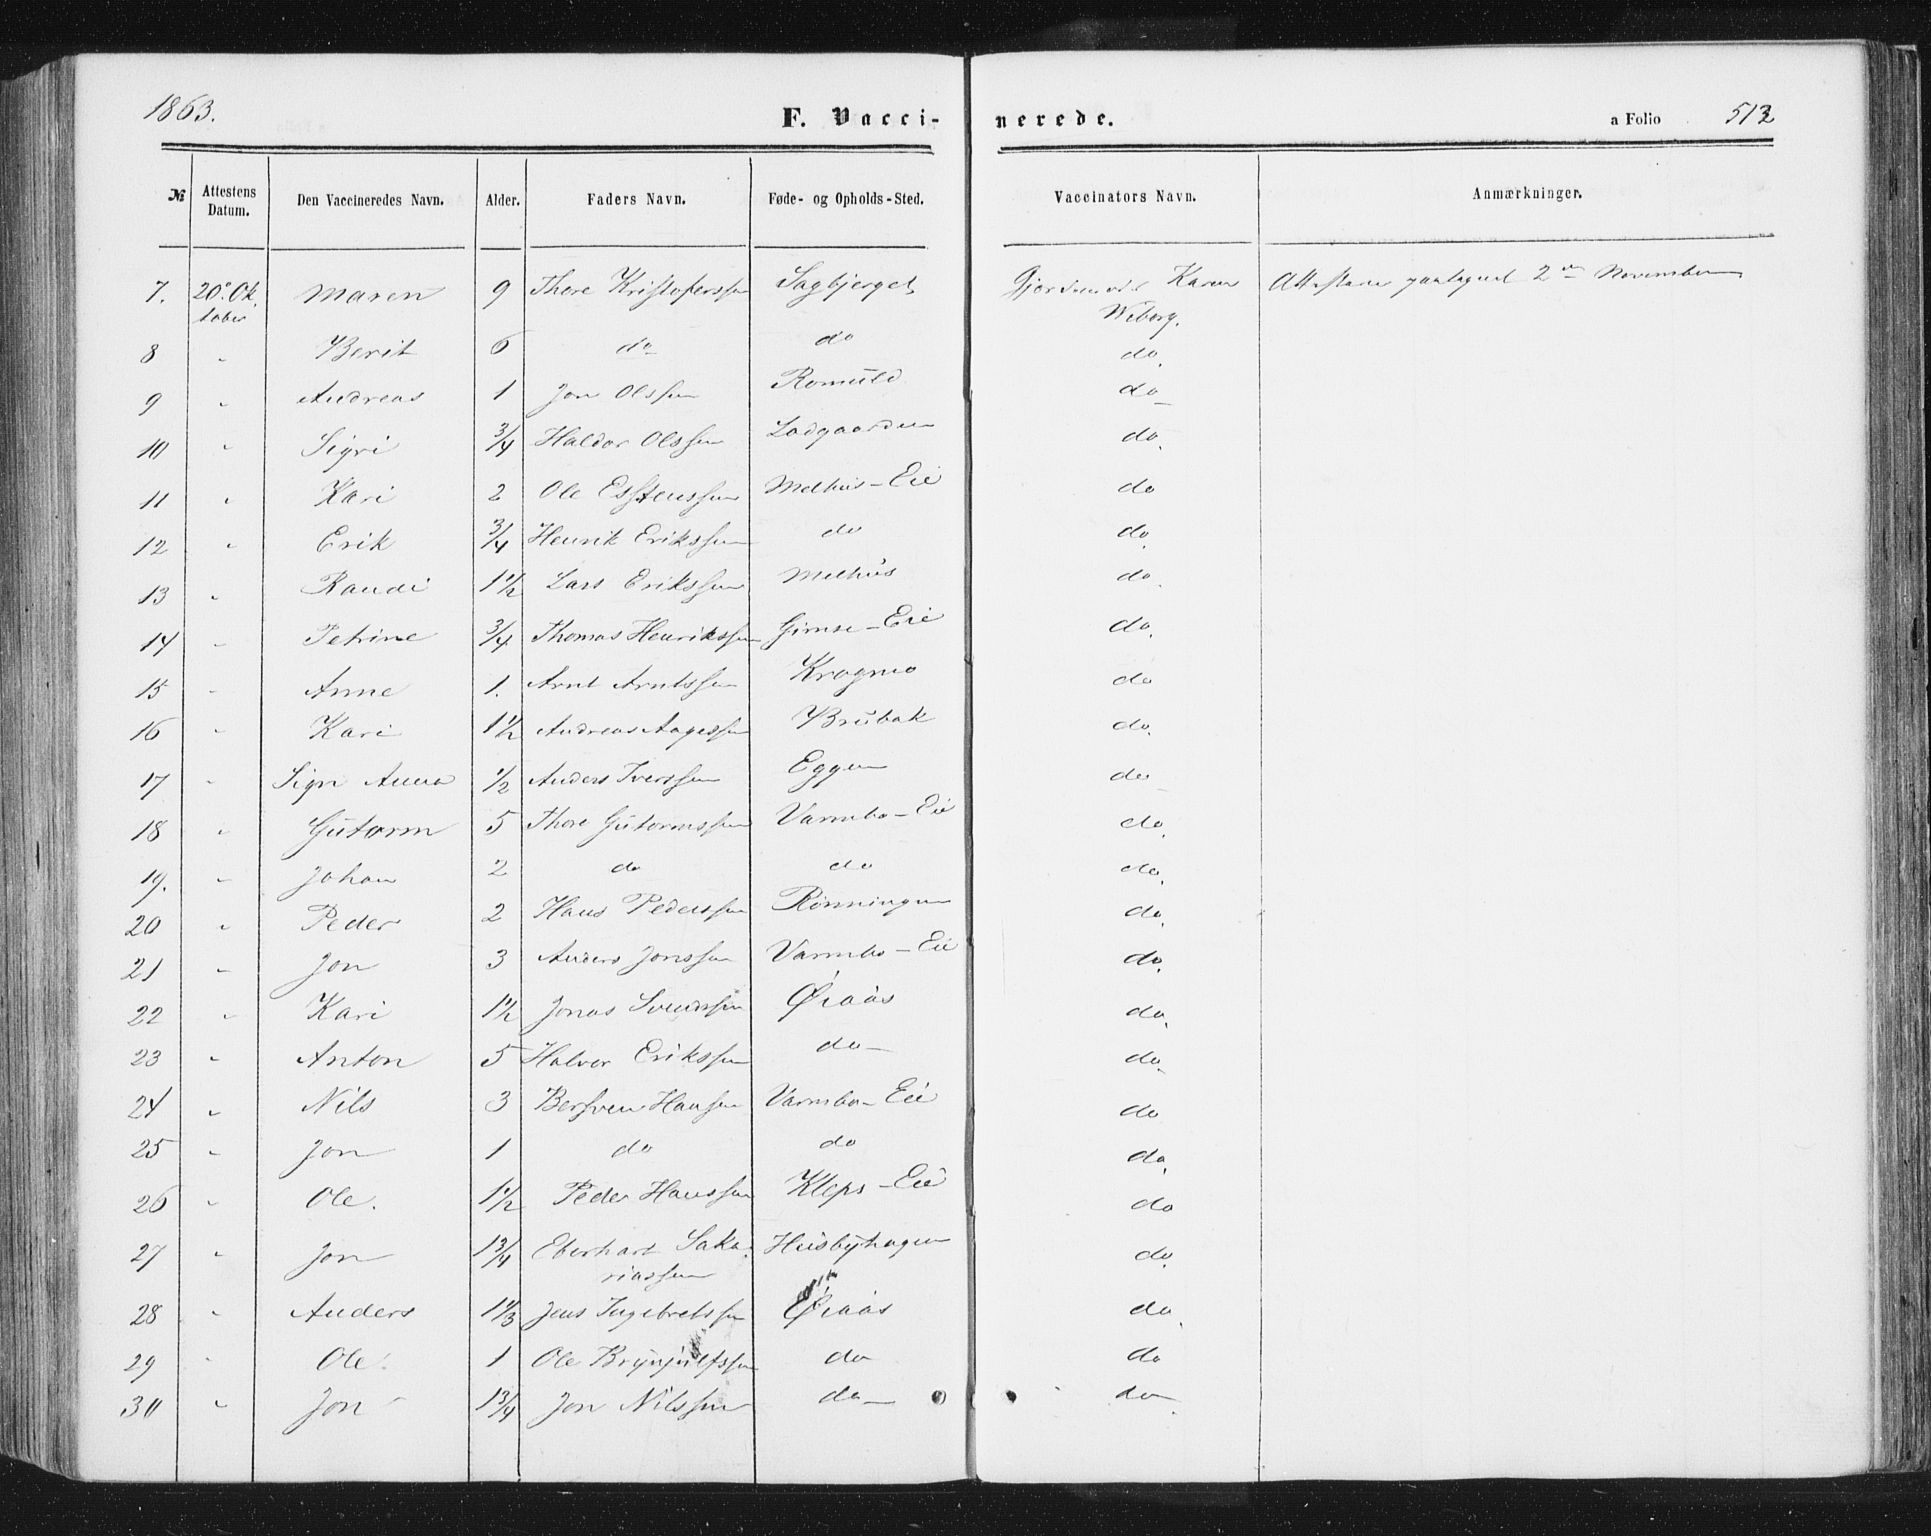 1863. F. Vacci- nerede. a Folio 513
№ Attestens Datum. Den Vaccineredes Navn. Alder. Faders Navn. Føde- og Opholds-Sted. Vaccinators Navn. Anmærkninger.
7. 20. Ok- Maren 9 Thore Kristoferssen Sagbjerget Karen 2 November
tober Wiborg.
8 " Berit 6 do do do.
9 " Andreas 1 Jon Olssen Romuld do
10 " Sigri 3/4 Haldor Olssen Ladgaarden do.
11 " Kari 2 Ole Estenssen Melhus-Eie do
12 " Erik 3/4 Henrik Erikssen do do.
13 " Randi 1 1/2 Lars Erikssen Melhus do.
14 " Petrine 3/4 Thomas Henrikssen Gimse-Eie do.
15 " Anne 1. Arnt Arntssen Krogmo do
16 " Kari 1 1/2 Andreas Aagessen Brubak do.
17 " Sigri Anna 1/2 Anders Iverssen Eggen do
18 " Gutorm 5 Thore Gutormssen Varmbo-Eie do.
19. " Johan 2 do do do.
20 " Peder 2 Hans Pederssen Rønningen do.
21 " Jon 3 Anders Jonssen Varmbo-Eie do.
22 " Kari 1 1/2 Jonas Svendssen Øiaas do.
23 " Anton 5 Halvor Erikssen do do.
24 " Nils 3 Bersven Hansen Varmbo-Eie do
25 " Jon 1 do do do.
26 " Ole. 1 1/2 Peder Hanssen Kleps-Eie do
27 " Jon 1 3/4 Eberhart Saka- Husbyhagen do.
riassen
28 " Anders 1 1/3 Jens Ingebretssen Øiaas do.
29 " Ole. 1 Ole Brynjulfssen do do
30 " Jon 1 3/4 Jon Nilssen do do